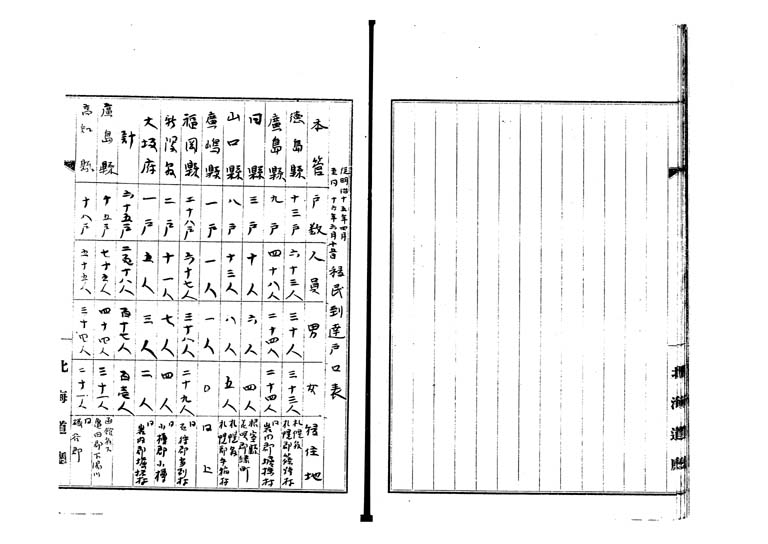 従明治十五年四月
至同 十六年六月十五日 移民到達戸口表
本管 戸数 人員 男 女 移住地
徳島縣 十三戸 六十三人 三十人 三十三人 札幌縣 札幌郡篠路村
廣島縣 九戸 四十八人 二十四人 二十四人 同 岩内郡
同縣 三戸 十人 六人 四人 根室縣 花咲郡緑町
山口縣 八戸 十三人 八人 五人 札幌縣 札幌郡手稲村
廣嶋縣 一戸 一人 一人 〇 同上
福岡縣 二十八戸 六十七人 三十八人 二十九人 同 石狩郡當別村
新潟縣 二戸 十一人 七人 四人 同 小樽郡小樽
大坂府 一戸 五人 三人 二人 同 岩内郡
計 六十五戸 二百十八人 百十七人 百壱人
廣島縣 十五戸 七十五人 四十四人 三十一人 函館縣下 亀田郡下湯川
高知縣 十八戸 五十五人 三十四人 二十一人 同 磯谷郡
北海道廳
北海道廳